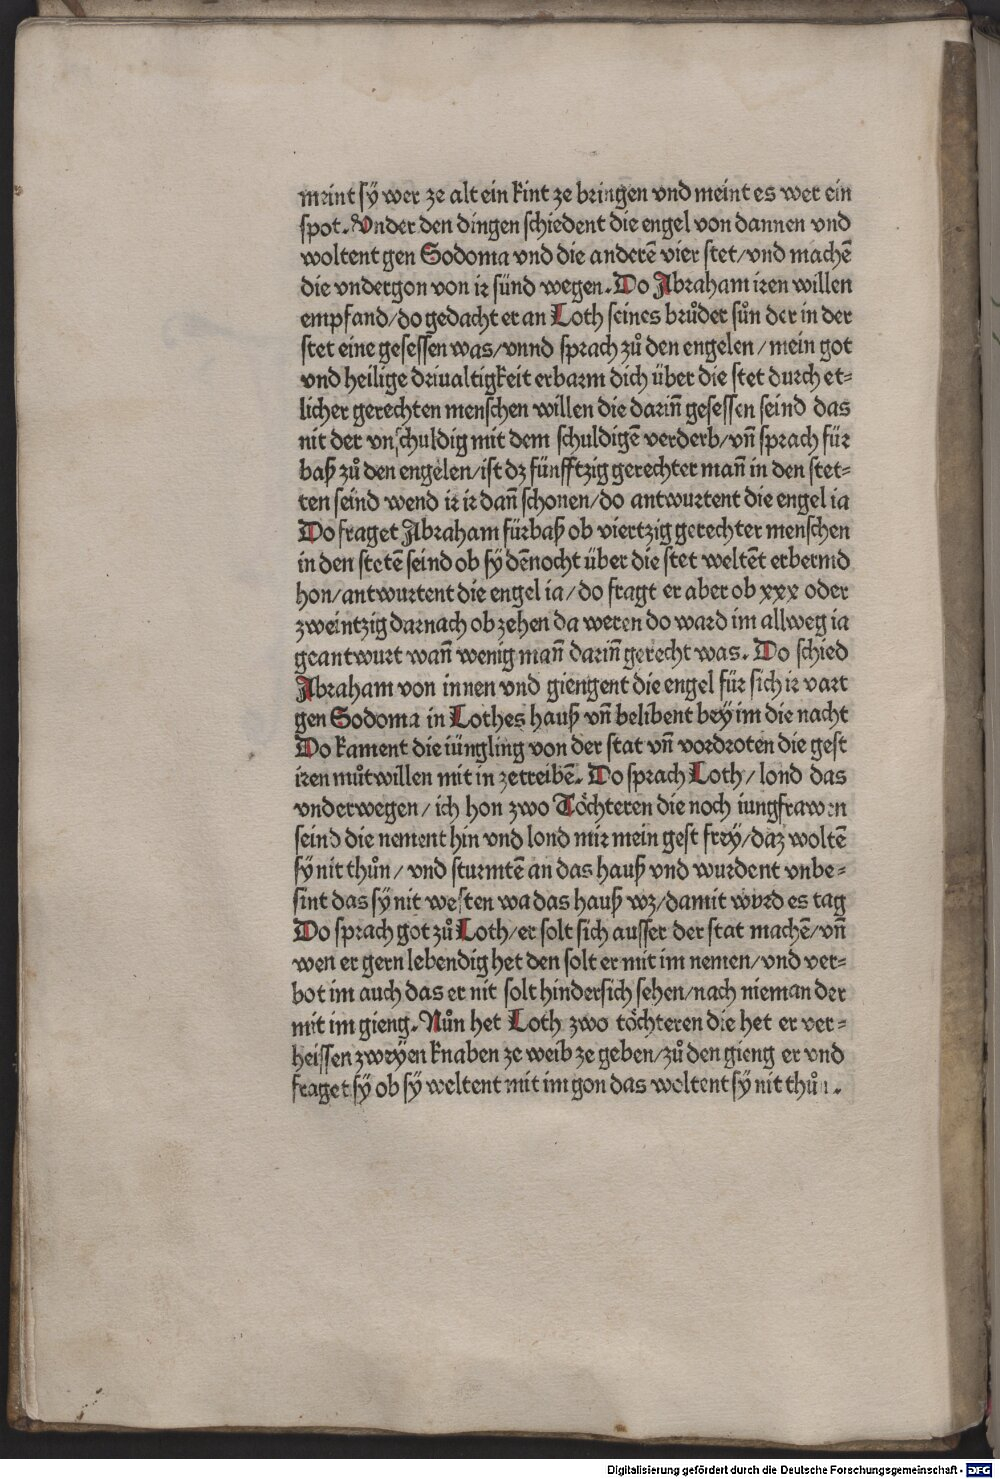 meint sÿ wer ze alt ein kint ze bringen vnd meint es wer ein
spot. Vnder den dingen schiedent die engel von dannen vnd
woltent gen Sodoma vnd die anderē vier stet/ vnd machē
die vndergon von ir sünd wegen. Do Abraham iren willen
empfand/ do gedacht er an Loth seines brůder sůn der in der
stet eine gesessen was/ vnnd sprach zů den engelen / mein got
vnd heilige driualtigkeit erbarm dich über die stet durch et⸗
licher gerechten menschen willen die dariñ gesessen seind das
nit der vnschuldig mit dem schuldigē verderb/ vñ sprach für
baß zů den engelen/ ist dz fünfftzig gerechter mañ in den stet⸗
ten seind wend ir ir dañ schonen/ do antwurtent die engel ia
Do fraget Abraham fürbaß ob viertzig gerechter menschen
in den stetē seind ob sÿ dēnocht über die stet weltēt erbermd
hon/ antwurtent die engel ia/ do fragt er aber ob xxx oder
zweintzig darnach ob zehen da weren do ward im allweg ia
geantwurt wañ wenig mañ dariñ gerecht was. Do schied
Abraham von innen vnd giengent die engel für sich ir vart
gen Sodoma in Lothes hauß vñ belibent beÿ im die nacht
Do kament die iüngling von der stat vñ vordroten die gest
iren můtwillen mit in zetreibē. Do sprach Loth/ lond das
vnderwegen/ ich hon zwo Töchteren die noch iungfrawen
seind die nement hin vnd lond mir mein gest freÿ/ daz woltē
sÿ nit thůn/ vnd sturmtē an das hauß vnd wurdent vnbe⸗
sint das sÿ nit westen wa das hauß wz/ damit wurd es tag
Do sprach got zů Loth/ er solt sich ausser der stat machē/ vñ
wen er gern lebendig het den solt er mit im nemen/ vnd ver⸗
bot im auch das er nit solt hindersich sehen/ nach nieman der
mit im gieng. Nůn het Loth zwo töchteren die het er ver⸗
heissen zweÿen knaben ze weib ze geben/ zů den gieng er vnd
fraget sÿ ob sÿ weltent mit im gon das woltent sÿ nit thůn.
Digitalisierung gefördert durch die Deutsche Forschungsgemeinschaft - DFG